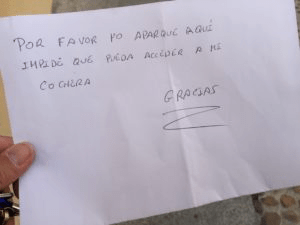 POR FAVOR NO APARQUE AQUÍ
IMPIDE QUE PUEDA ACCEDER A MI
COCHERA
GRACIAS